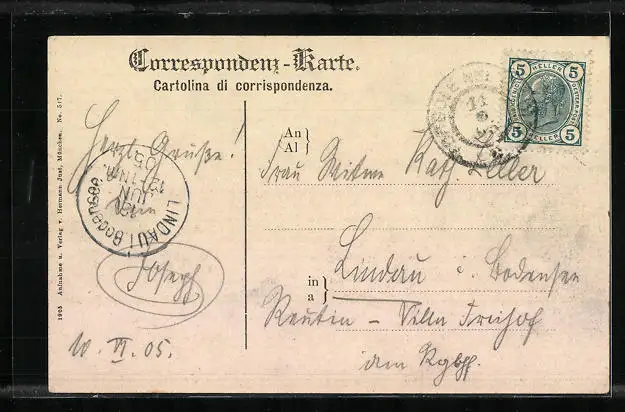 Correspondenz-Karte.
Cartolina di corrispondenza.
5 HELLER 5
5 HELLER 5
Herzl. Grüße!
Joseph
10. VI. 05.
An
Al
Frau Witwe Kath. Zeller
in
a
Lindau i. Bodensee
Reutin - Villa
am
LINDAU i. Bodensee
JUN
05
1905 Aufnahme u. Verlag v. Hermann Just, München. No. 517.